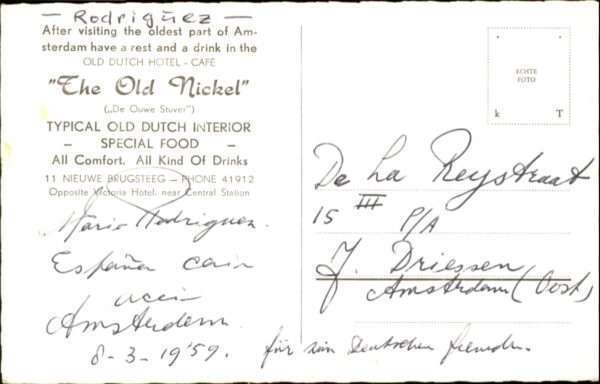 — Rodriguez —
After visiting the oldest part of Am-
sterdam have a rest and a drink in the
OLD DUTCH HOTEL - CAFÉ
"The Old Nickel"
(„De Ouwe Stuver")
TYPICAL OLD DUTCH INTERIOR
– SPECIAL FOOD –
All Comfort. All Kind Of Drinks
11 NIEUWE BRUGSTEEG – PHONE 41912
Opposite Victoria Hotel, near Central Station
Maria Rodriguez.
España
Amsterdam.
8-3-19'59.
ECHTE
FOTO
k T
De La Reystraat
15 III P/A
J. Driessen
Amsterdam (Oost)
für sein Deutschen freunden.